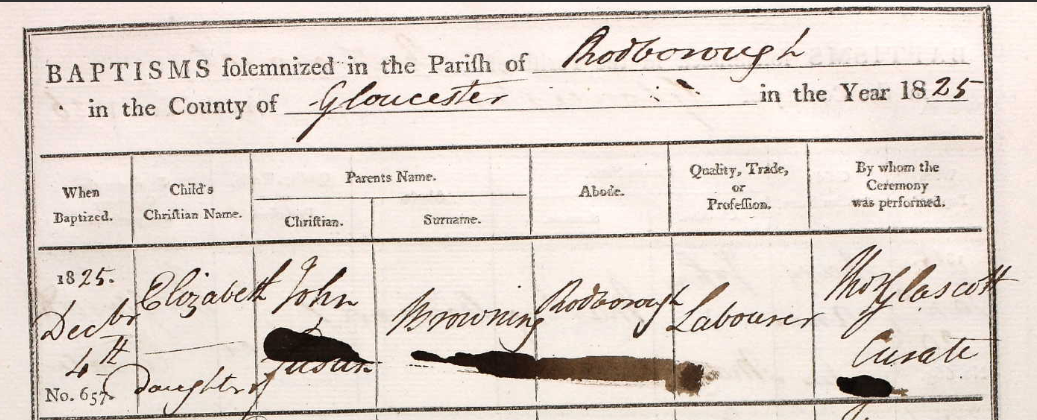 BAPTISMS solemnized in the Parish of Rodborough
in the County of Gloucester in the Year 1825
When Baptized.
Child's Christian Name.
Parents Name.
Christian.
Surname.
Abode.
Quality, Trade, or Profession.
By whom the Ceremony was performed.
1825.
Decbr
4th
No. 657.
Elizabeth
daughter of
John
Browning
Rodborough
Labourer
Thos Glascott
Curate